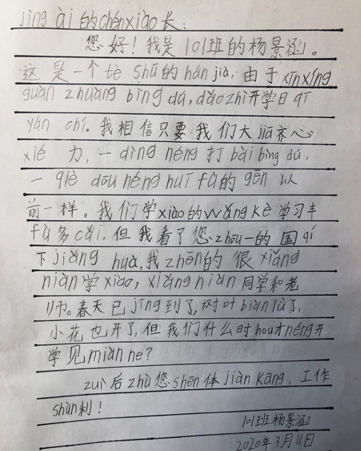 jìng ài的chén xiào长：
您好！我是101班的杨景涵。
这是一个tè shū的hán jià，由于xīn xíng
guān zhuàng bìng dú，dǎo zhì开学日qī
yán chí。我相信只要我们大jiā齐心
xié力，一dìng néng打bài bìng dú，
一qiè dōu néng huī fù的gēn以
前一样。我们学xiào的wǎng kè学习丰
fù多cǎi，但我看了您zhōu一的国qí
下jiǎng huà，我zhēn的很xiǎng
niàn学xiào，xiǎng niàn同学和老
师。春天已jīng到了，树叶biàn lǜ了，
小花也开了，但我们什么时hou才néng开
学见miàn ne？
zuì后zhù您shēn体jiàn kāng，工作
shùn利！
101班杨景涵
2020年3月11日